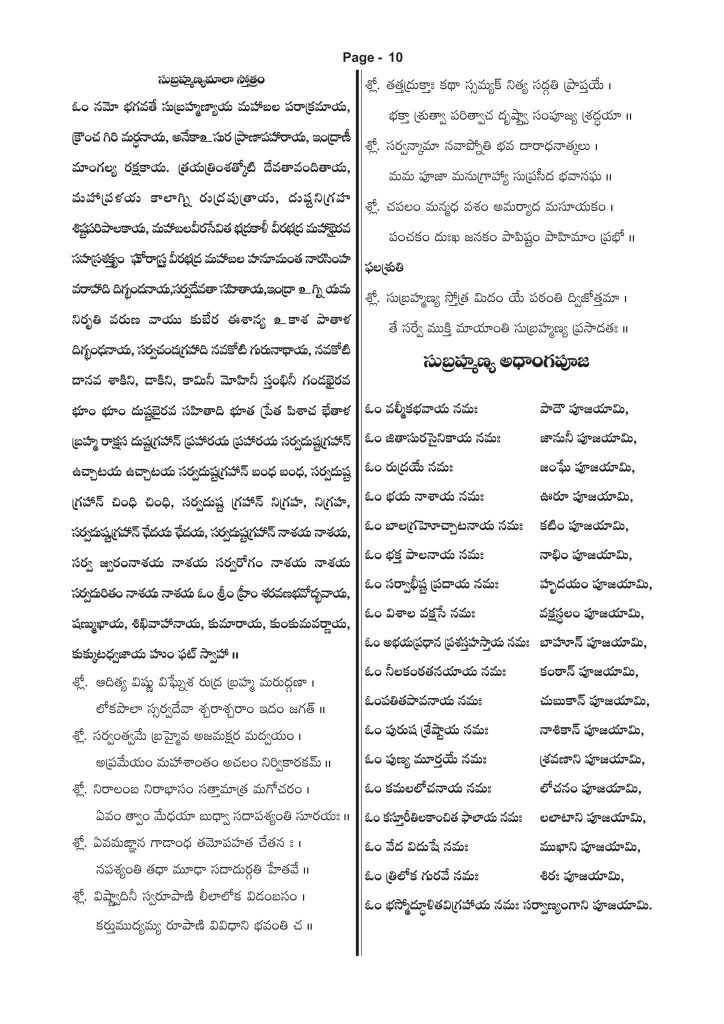 Page - 10
సుబ్రహ్మణ్యమాలా స్తోత్రం
ఓం నమో భగవతే సుబ్రహ్మణ్యాయ మహాబల పరాక్రమాయ,
క్రౌంచ గిరి మర్ధనాయ, అనేకాఒసుర ప్రాణాపహారాయ, ఇంద్రాణీ
మాంగల్య రక్షకాయ. త్రయత్రింశత్కోటి దేవతావందితాయ,
మహాప్రళయ కాలాగ్ని రుద్రపుత్రాయ, దుష్టనిగ్రహ
శిష్టపరిపాలకాయ, మహాబలవీరసేవిత భద్రకాళీ వీరభద్ర మహాభైరవ
సహస్రశక్త్యం ఘోరాస్త్ర వీరభద్ర మహాబల హనూమంత నారసింహ
వరాహాది దిగ్బందనాయ,సర్వదేవతా సహితాయ,ఇంద్రా ఒగ్ని యమ
నిరృతి వరుణ వాయు కుబేర ఈశాన్య ఒకాశ పాతాళ
దిగ్భంధనాయ, సర్వచండగ్రహాది నవకోటి గురునాథాయ, నవకోటి
దానవ శాకిని, డాకిని, కామినీ మోహినీ స్తంభినీ గండభైరవ
భూం భూం దుష్టభైరవ సహితాది భూత ప్రేత పిశాచ భేతాళ
బ్రహ్మ రాక్షస దుష్టగ్రహాన్ ప్రహారయ ప్రహారయ సర్వదుష్టగ్రహాన్
ఉచ్చాటయ ఉచ్చాటయ సర్వదుష్టగ్రహాన్ బంధ బంధ, సర్వదుష్ట
గ్రహాన్ చింధి చింధి, సర్వదుష్ట గ్రహాన్ నిగ్రహ, నిగ్రహ,
సర్వదుష్టగ్రహాన్ ఛేదయ ఛేదయ, సర్వదుష్టగ్రహాన్ నాశయ నాశయ,
సర్వ జ్వరంనాశయ నాశయ సర్వరోగం నాశయ నాశయ
సర్వదురితం నాశయ నాశయ ఓం శ్రీం హ్రీం శరవణభవోద్భవాయ,
షణ్ముఖాయ, శిఖివాహానాయ, కుమారాయ, కుంకుమవర్ణాయ,
కుక్కుటధ్వజాయ హుం ఫట్ స్వాహా ॥
శ్లో. ఆదిత్య విష్ణు విఘ్నేశ రుద్ర బ్రహ్మ మరుద్గణా ।
లోకపాలా స్సర్వదేవా శ్చరాశ్చరాం ఇదం జగత్ ॥
శ్లో. సర్వంత్వమే బ్రహ్మైవ అజమక్షర మద్వయం ।
అప్రమేయం మహాశాంతం అచలం నిర్వికారకమ్ ॥
శ్లో. నిరాలంబ నిరాభాసం సత్తామాత్ర మగోచరం ।
ఏవం త్వాం మేధయా బుధ్వా సదాపశ్యంతి సూరయః ॥
శ్లో. ఏవమజ్ఞాన గాడాంధ తమోపహత చేతన ః ।
నపశ్యంతి తధా మూఢా సదాదుర్గతి హేతవే ॥
శ్లో. విష్ణ్వాదినీ స్వరూపాణి లీలాలోక విడంబసం ।
కర్తుముద్యమ్య రూపాణి వివిధాని భవంతి చ ॥
శ్లో. తత్తద్రుక్తాః కథా స్సమ్యక్ నిత్య సద్గతి ప్రాప్తయే ।
భక్తా శ్రుత్వా పఠిత్వాచ దృష్ట్వా సంపూజ్య శ్రద్ధయా ॥
శ్లో. సర్వన్కామా నవాప్నోతి భవ దారాధనాత్ఖలు ।
మమ పూజా మనుగ్రాహ్యా సుప్రసీద భవానఘ ॥
శ్లో. చపలం మన్మధ వశం అమర్యాద మసూయకం ।
పంచకం దుఃఖ జనకం పాపిష్టం పాహిమాం ప్రభో ॥
ఫలశ్రుతి
శ్లో. సుబ్రహ్మణ్య స్తోత్ర మిదం యే పఠంతి ద్విజోత్తమా ।
తే సర్వే ముక్తి మాయాంతి సుబ్రహ్మణ్య ప్రసాదతః ॥
సుబ్రహ్మణ్య అధాంగపూజ
ఓం వల్మీకభవాయ నమః పాదౌ పూజయామి,
ఓం జితాసురసైనికాయ నమః జానునీ పూజయామి,
ఓం రుద్రయే నమః జంఘే పూజయామి,
ఓం భయ నాశాయ నమః ఊరూ పూజయామి,
ఓం బాలగ్రహోచ్చాటనాయ నమః కటిం పూజయామి,
ఓం భక్త పాలనాయ నమః నాభిం పూజయామి,
ఓం సర్వాభీష్ట ప్రదాయ నమః హృదయం పూజయామి,
ఓం విశాల వక్షసే నమః వక్షస్థలం పూజయామి,
ఓం అభయప్రధాన ప్రశస్తహస్తాయ నమః బాహూన్ పూజయామి,
ఓం నీలకంఠతనయాయ నమః కంఠాన్ పూజయామి,
ఓంపతితపావనాయ నమః చుబుకాన్ పూజయామి,
ఓం పురుష శ్రేష్టాయ నమః నాశికాన్ పూజయామి,
ఓం పుణ్య మూర్తయే నమః శ్రవణాని పూజయామి,
ఓం కమలలోచనాయ నమః లోచనం పూజయామి,
ఓం కస్తూరీతిలకాంచిత ఫాలాయ నమః లలాటాని పూజయామి,
ఓం వేద విదుషే నమః ముఖాని పూజయామి,
ఓం త్రిలోక గురవే నమః శిరః పూజయామి,
ఓం భస్మోద్ధూళితవిగ్రహాయ నమః సర్వాణ్యంగాని పూజయామి.